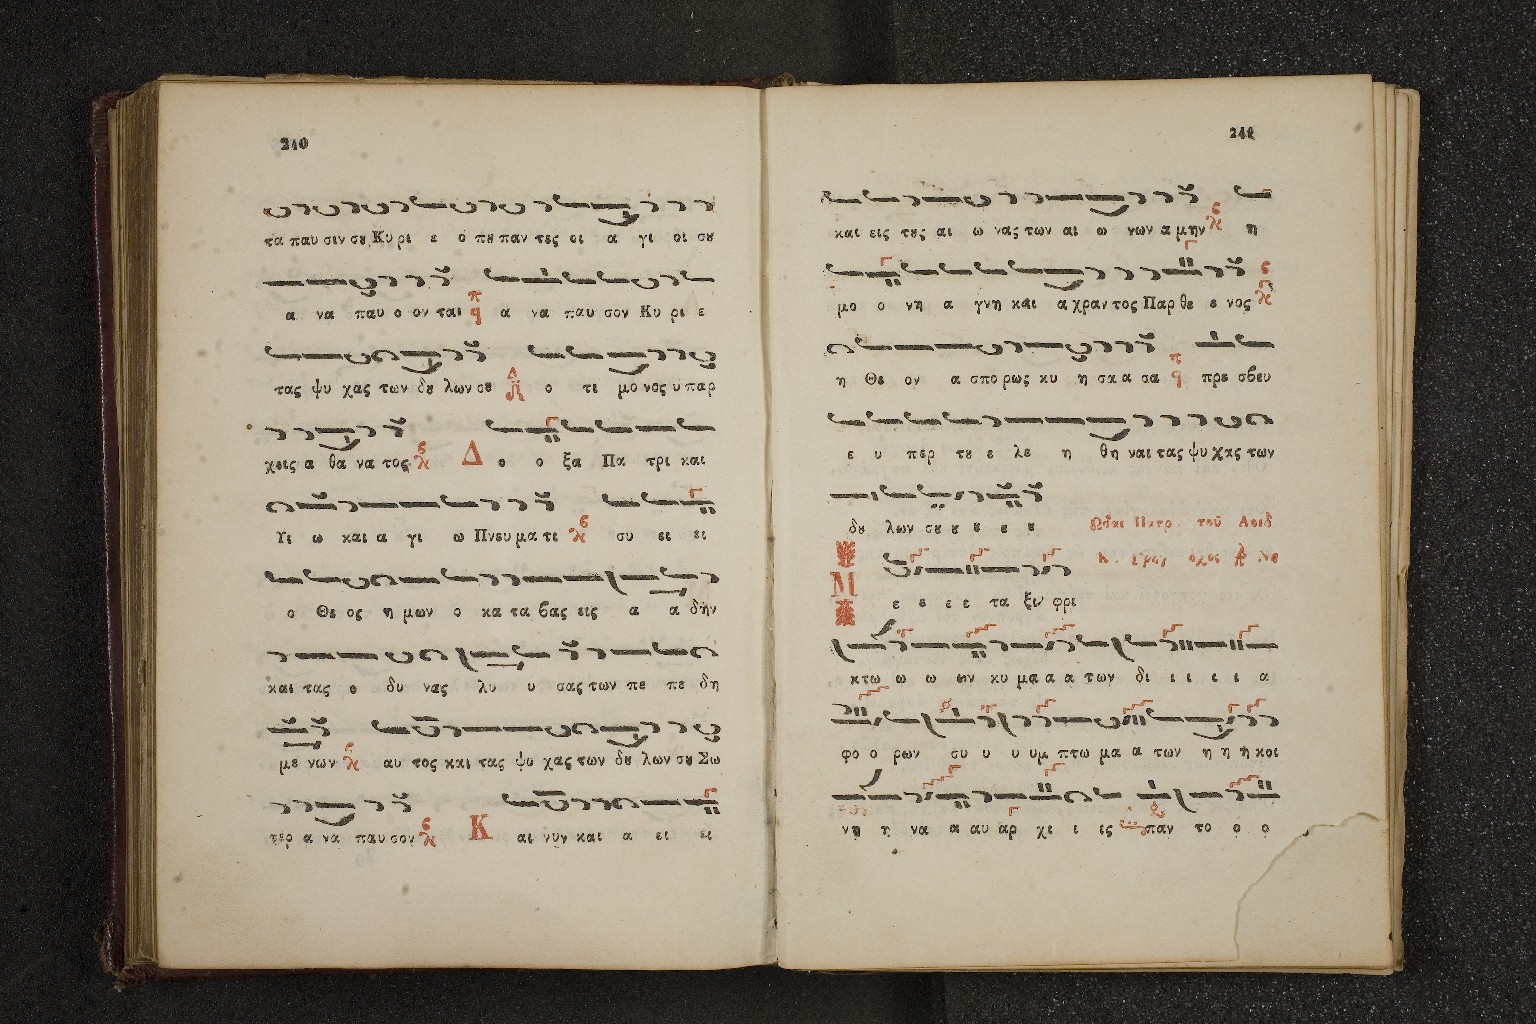 240
τα παυ σιν σȣ Κυ ρι ε ο πȣ παν τες οι α γι οι σȣ
α να παυ ο ον ται α να παυ σον Κυ ρι ε
τας ψυ χας των δȣ λων σȣ ο τι μο νος υ παρ
χεις α θα να τος Δ ο ο ξα Πα τρι και
Υι ω και α γι ω Πνευ μα τι συ ει ει
ο Θε ος η μων ο κα τα βας εις α α δην
και τας ο δυ νας λυ υ σας των πε πε δη
με νων αυ τος και τας ψυ χας των δȣ λων σȣ Σω
τερ α να παυ σον Κ αι νυν και α ει ει
241
και εις τȣς αι ω νας των αι ω νων α μην η
μο ο νη α γνη και α χραν τος Παρ θε ε νος
η Θε ον α σπο ρως κυ η σα α σα πρε σβευ
ε υ περ τȣ ε λε η θη ναι τας ψυ χας των
δȣ λων σȣ ȣ ȣ ȣ ȣ
Μ ε ε ε ε τα ξιν φρι
κτω ω ω ων κυ μα α α των δι ι ι ι ι α
φο ο ρων συ υ υ υμ πτω μα α των η η η κοι
νη η να α αυ αρ χι ι ις παν το ο ο